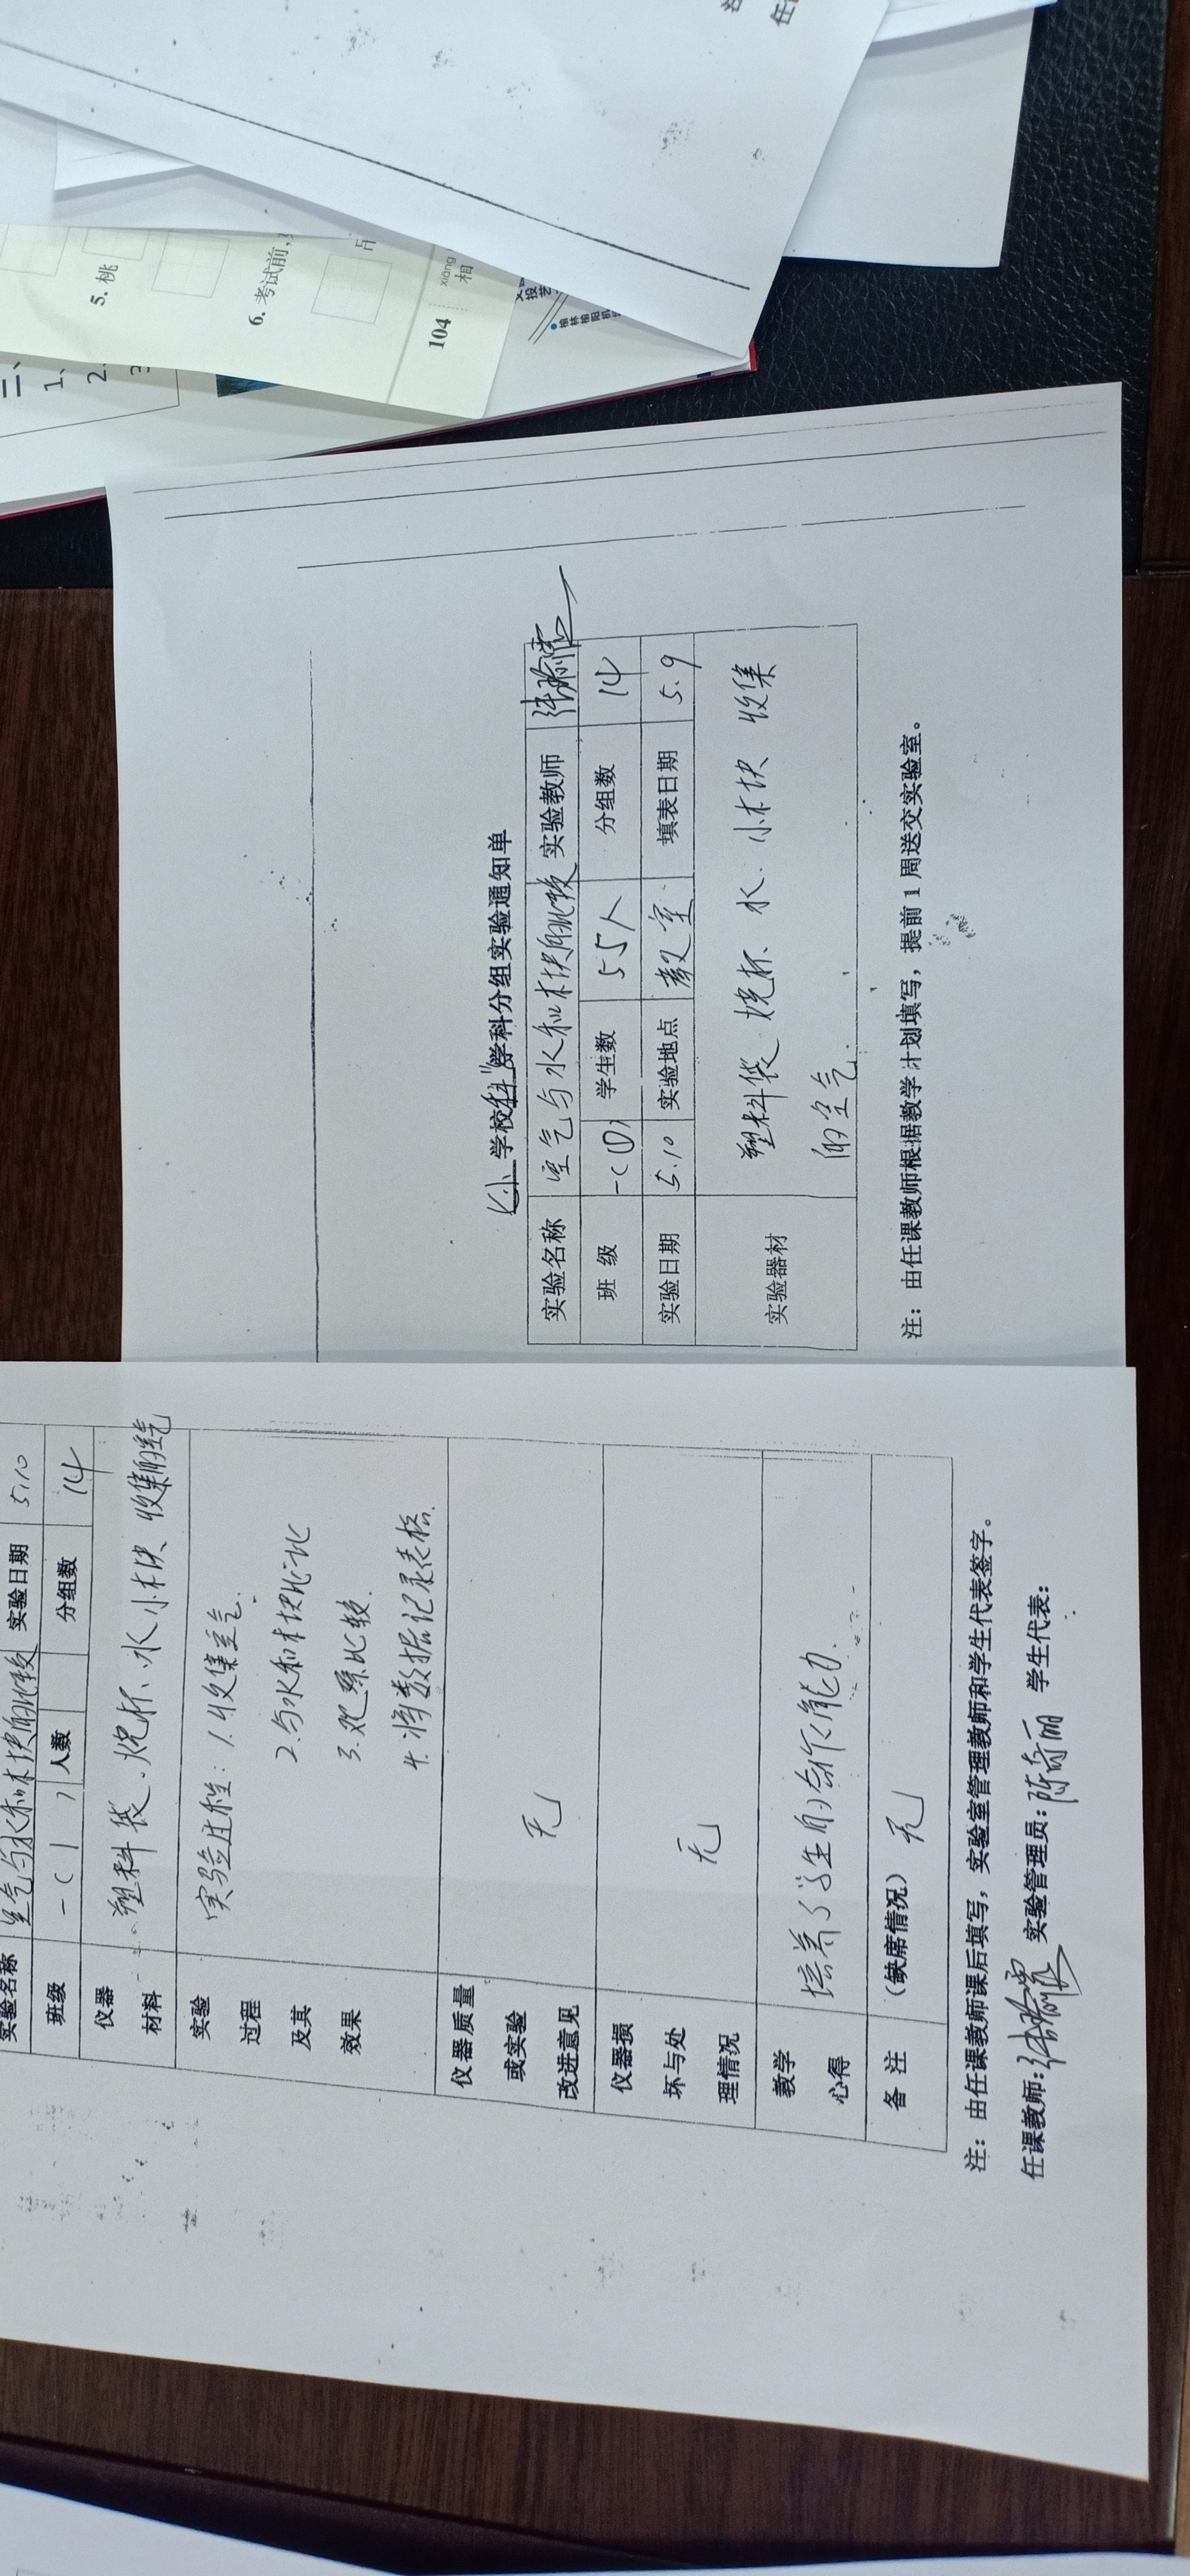 二、
1、
2.
3
5. 桃
6. 考试前，
104
xiāng
相
榆林榆阳机
学校科学学科分组实验通知单
实验名称 空气与水和木块的比较 实验教师
班 级 一(1) 学生数 55人 分组数 14
实验日期 5.10 实验地点 教室 填表日期 5.9
实验器材 塑料袋、烧杯、水、小木块 收集
的空气.
注：由任课教师根据教学计划填写，提前1周送交实验室。
实验名称 空气与水和木块的比较 实验日期 5.10
班级 一(1) 人数 分组数 14
仪器材料 塑料袋、烧杯、水 小木块 收集的空气
实验过程及其效果 实验过程：1.收集空气.
2.与水和木块比
3.观察比较.
4.将数据记录表格.
仪器质量或实验改进意见 无
仪器损坏与处理情况 无
教学心得 培养了学生的合作能力.
备 注 （缺席情况） 无
注：由任课教师课后填写，实验室管理教师和学生代表签字。
任课教师: 实验管理员: 陈奇丽 学生代表: